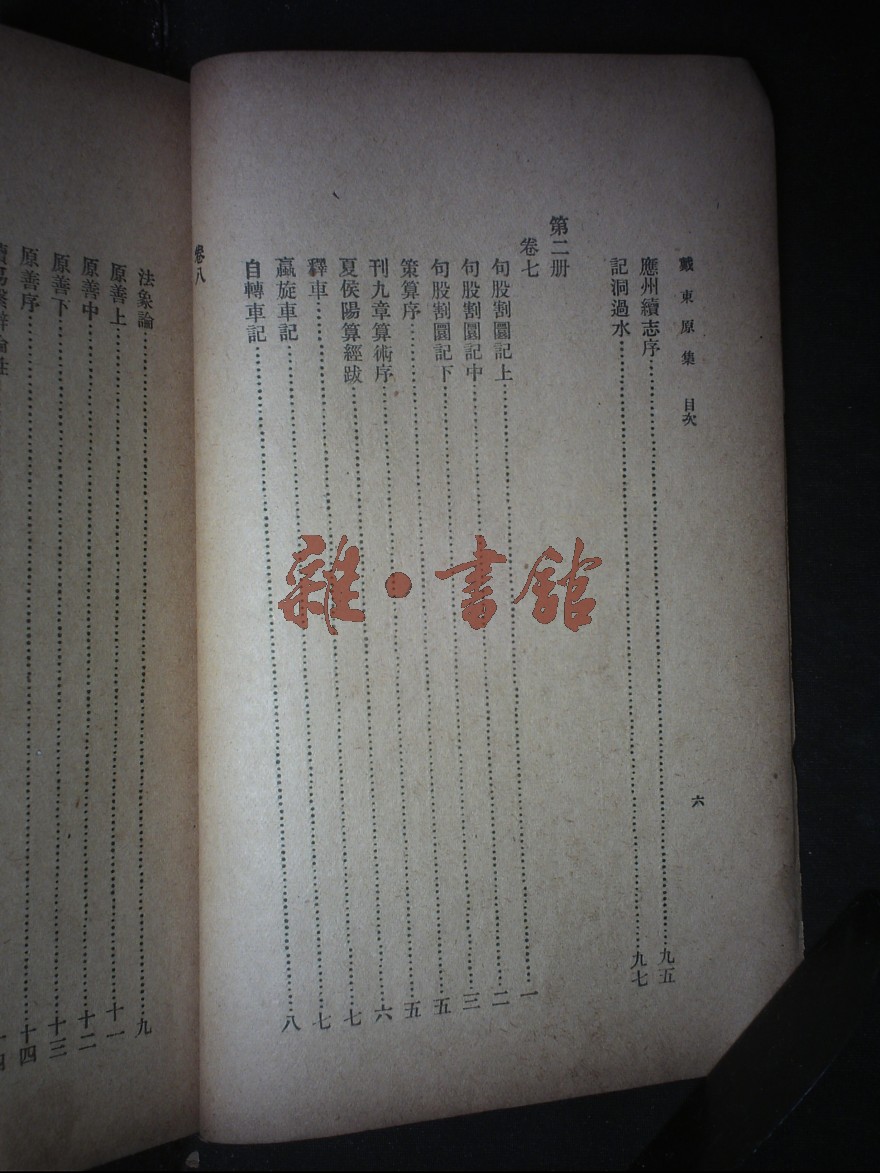 戴東原集 目次
六
應州續志序 九五
記洞過水 九七
第二册
卷七
句股割圜記上 一
句股割圜記中 二
句股割圜記下 三
策算序 五
刊九章算術序 五
夏侯陽算經跋 六
釋車 七
蠃旋車記 七
自轉車記 八
卷八
法象論 九
原善上 十一
原善中 十二
原善下 十三
原善序 十四
雜·書館